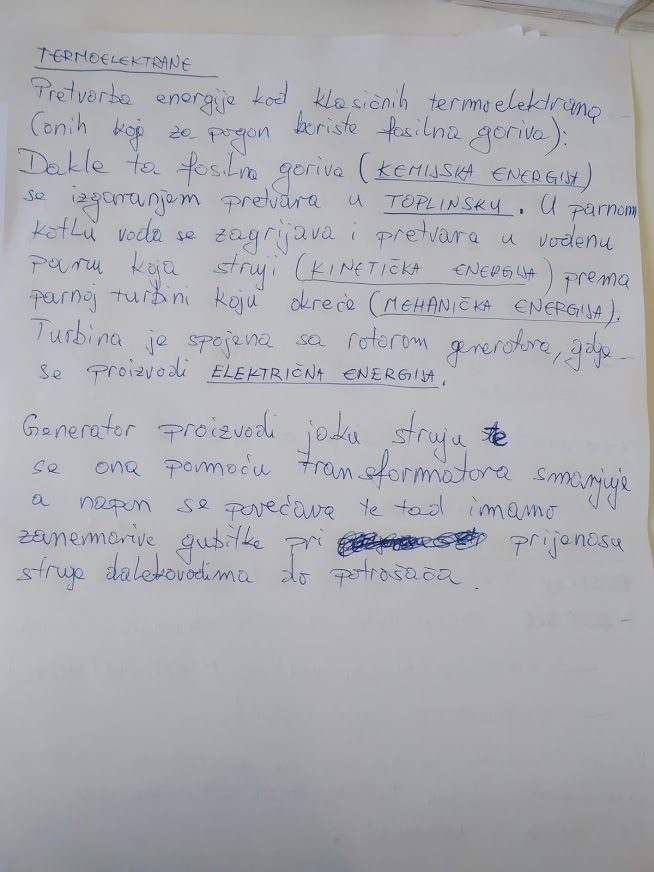 TERMOELEKTRANE
Pretvorba energije kod klasičnih termoelektrana
(onih koje za pogon koriste fosilna goriva):
Dakle ta fosilna goriva (KEMIJSKA ENERGIJA)
se izgaranjem pretvara u TOPLINSKU. U parnom
kotlu voda se zagrijava i pretvara u vodenu
paru koja struji (KINETIČKA ENERGIJA) prema
parnoj turbini koju okreće (MEHANIČKA ENERGIJA).
Turbina je spojena sa rotorom generatora, gdje
se proizvodi ELEKTRIČNA ENERGIJA.
Generator proizvodi jaku struju te
se ona pomoću transformatora smanjuje
a napon se povećava te tad imamo
zanemarive gubitke pri prijenosu
struje dalekovodima do potrošača.